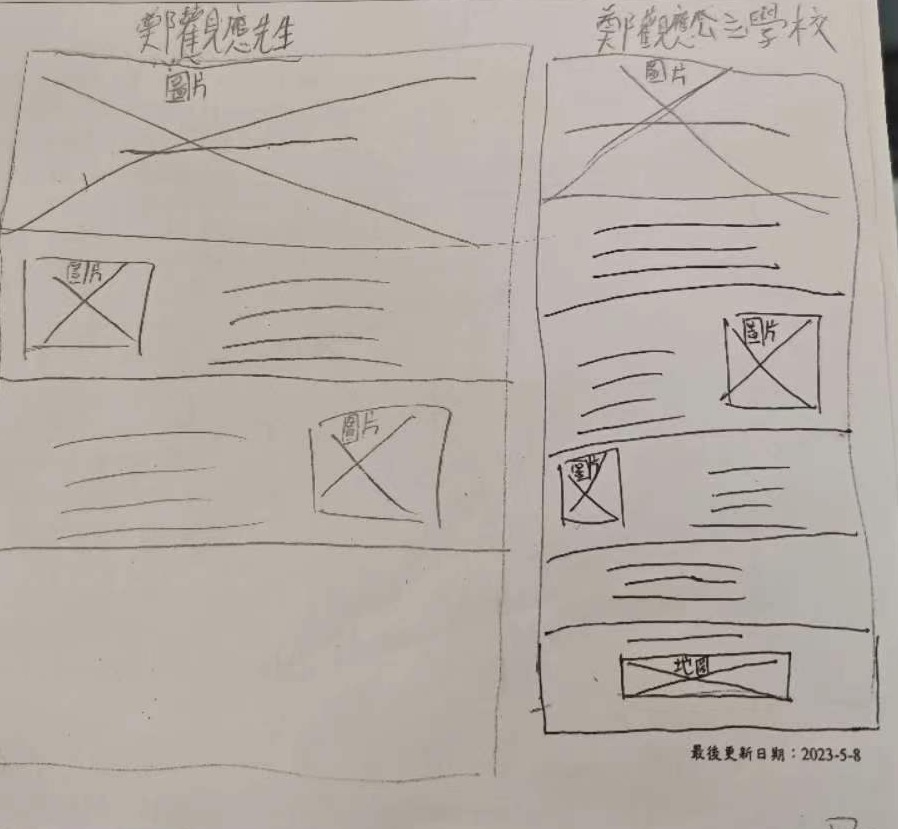 鄭觀應先生
圖片
圖片
圖片
鄭觀應公立學校
圖片
圖片
圖片
地圖
最後更新日期：2023-5-8